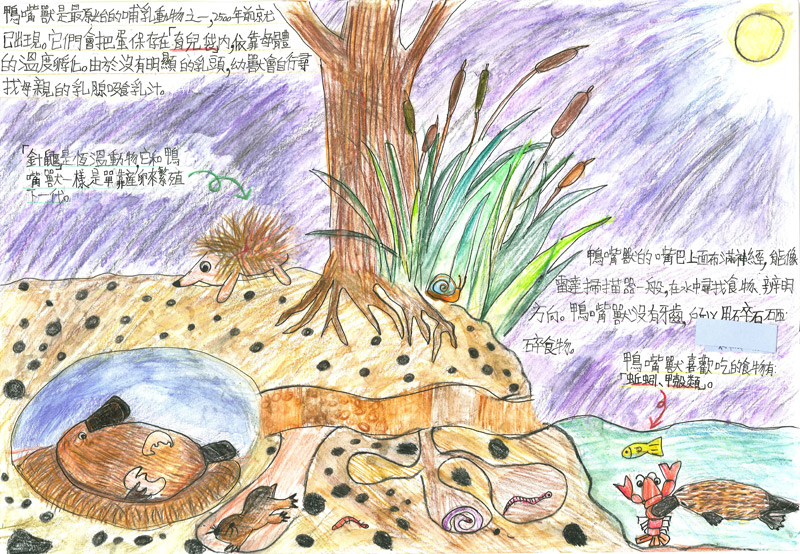 鴨嘴獸是最原始的哺乳動物之一,2500年前就
已出現。它們會把蛋保存在「育兒袋」內,依靠母體
的溫度孵化。由於沒有明顯的乳頭,幼獸會自行尋
找母親的乳腺吸食乳汁。
「針鼴」是恆溫動物,它和鴨
嘴獸一樣,是單靠產卵來繁殖
下一代。
鴨嘴獸的嘴巴上面布滿神經,能像
雷達掃描器一般,在水中尋找食物、辨明
方向。鴨嘴獸沒有牙齒,可以用碎石
碎食物。
鴨嘴獸喜歡吃的食物有:
「蚯蚓、甲殼類」。